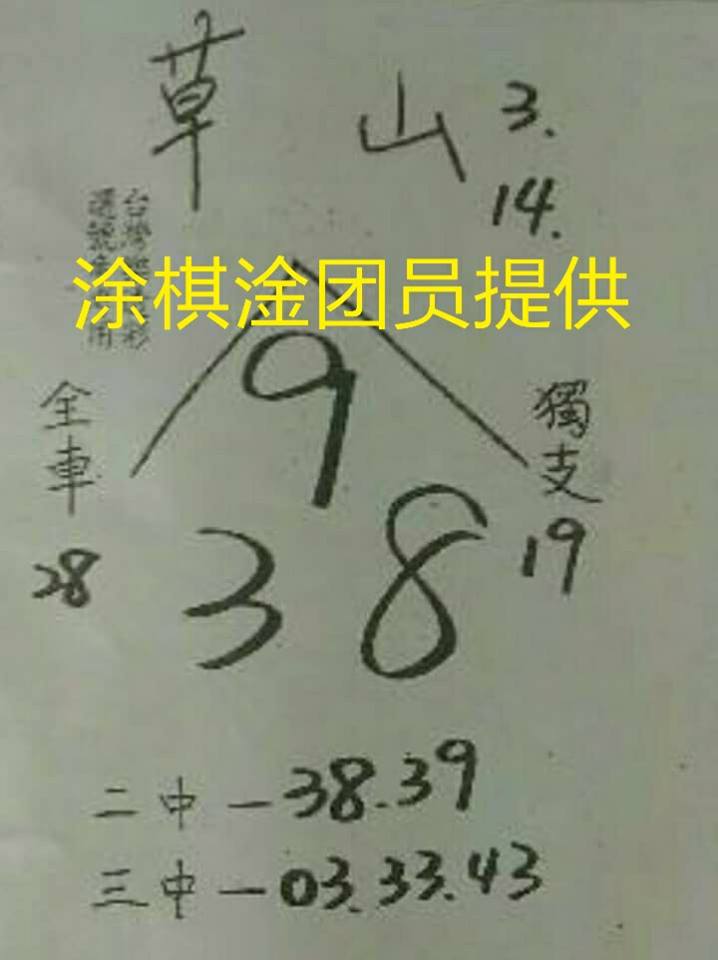 草山 3.
14.
台灣
選號
涂棋淦团员提供
9
全車
獨支
28
3 8
19
二中－38.39
三中－03.33.43